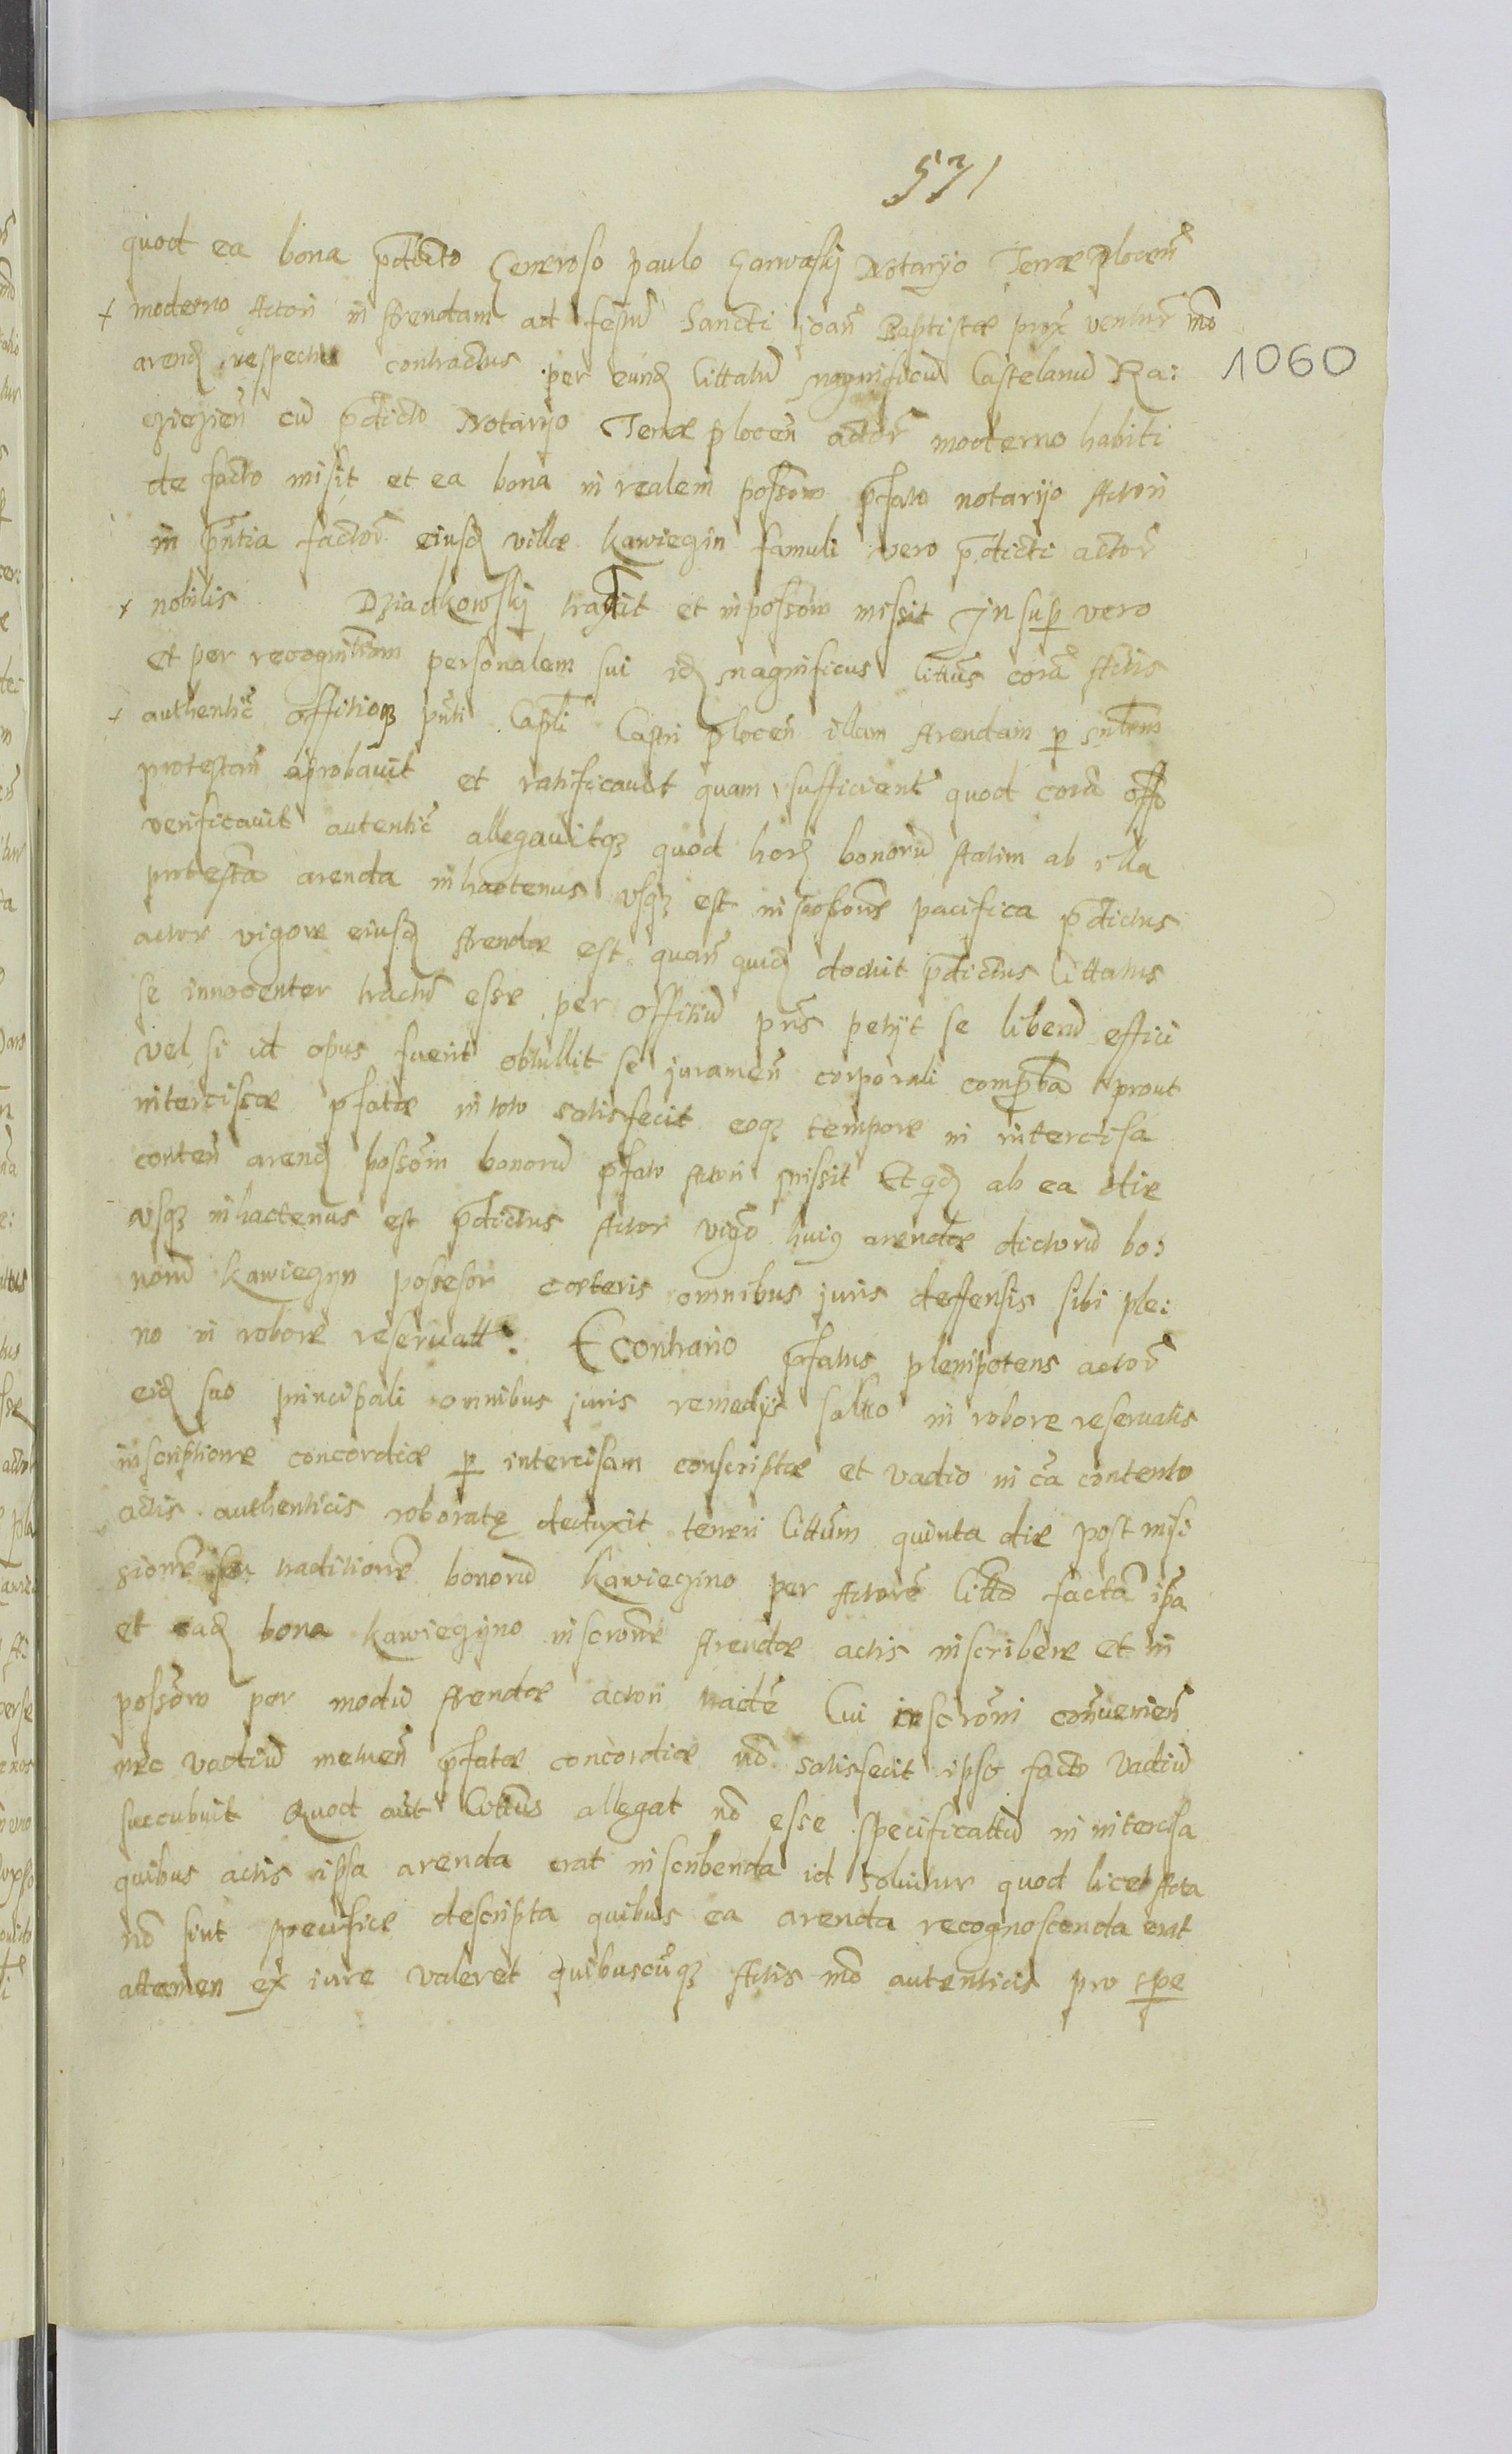 571
quod ea bona p̄dicto Generoso paulo Garwaskj Notaryo Terræ plocen̄
+ moderno Actori in Arendam ad festū Sancti joan̄ Baptistæ prox̄ ventur̄ mō
1060
arend̄ respectu contractus per eund̄ Cittatū Magnificū Castelanū Ra:
ciezien̄ cū p̄dicto Notaryo Terræ plocen̄ actor̄ moderno habiti
de facto misit et ea bona in realem possom̄ p̄fato notaryo Actori
in p̄ntia factor̄ eiusd̄ villæ Kawiegin famuli vero p̄dicti actor̄
+ nobilis Dziackowskj tradit et in possom̄ missit Jnsup̄ vero
et per recognitiom̄ personalem sui id̄ Magnificus Citt̄us corā Actis
+ authentic̄ offitioq̨ p̄nti Cap̄li Castri plocen̄ illam Arendam p̱
protestan̄ aprobauit et ratificauit quam sufficient̄ quod corā off̄o
verificauit autentic̄ allegauitq̨ quod hor̄ bonorū statim ab illa
protesta̅ arenda inhactenus vsq̨ est in possōne pacifica p̄dictus
actor vigore eiusd̄ Arendæ est quan̄ quid̄ docuit p̄dictus Cittatus
se innocenter tractū esse per Offitiū p̄ns petijt se liberū effici
vel si id opus fuerit obtullit se juramen̄ corporali comp̄ba prout
intercissæ p̄fatæ in toto satisfecit eoq̨ tempore in intercisa
conten̄ arend̄ possom̄ bonorū p̄fato Actori missit Et qd̄ ab ea die
vsq̨ inhactenus est p̄dictus Actor vigō huig arendæ dictorū bo:
norū Kawiegyn possesor cæteris omnibus juris deffensis sibi ple:
no in robore reseruatt: Econtrario p̄fatus plenipotens actor̄
eid̄ suo principali omnibus juris remedijs saluo in robore reseruatis
inscriptione concordiæ p̱ intercisam conscriptæ et vadio in ea contento
actis authenticis roboratę deduxit teneri Citt̄um quinta die post misi
sionē seu traditionē bonorū Kawiegino per Actorē Citt̄o factā ip̄a
et ead̄ bona Kawiegyno inscrōne Arendæ actis inscribere et in
possom̄ per modū Arendæ actori tradē Cui inscrōni conuenien̄
nec vadiū metuen̄ p̄fatæ concordiæ nō satisfecit ipso facto vadiū
succubuit Quod aūt Citt̄us allegat nō esse specificattū in intercisa
quibus actis ipsa arenda erat inscribenda id soluitur quod licet Acta
nō sint specifice descripta quibus ea arenda recognoscenda erat
attamen ex iure valeret quibuscūq̨ Actis mō autenticis pro spe